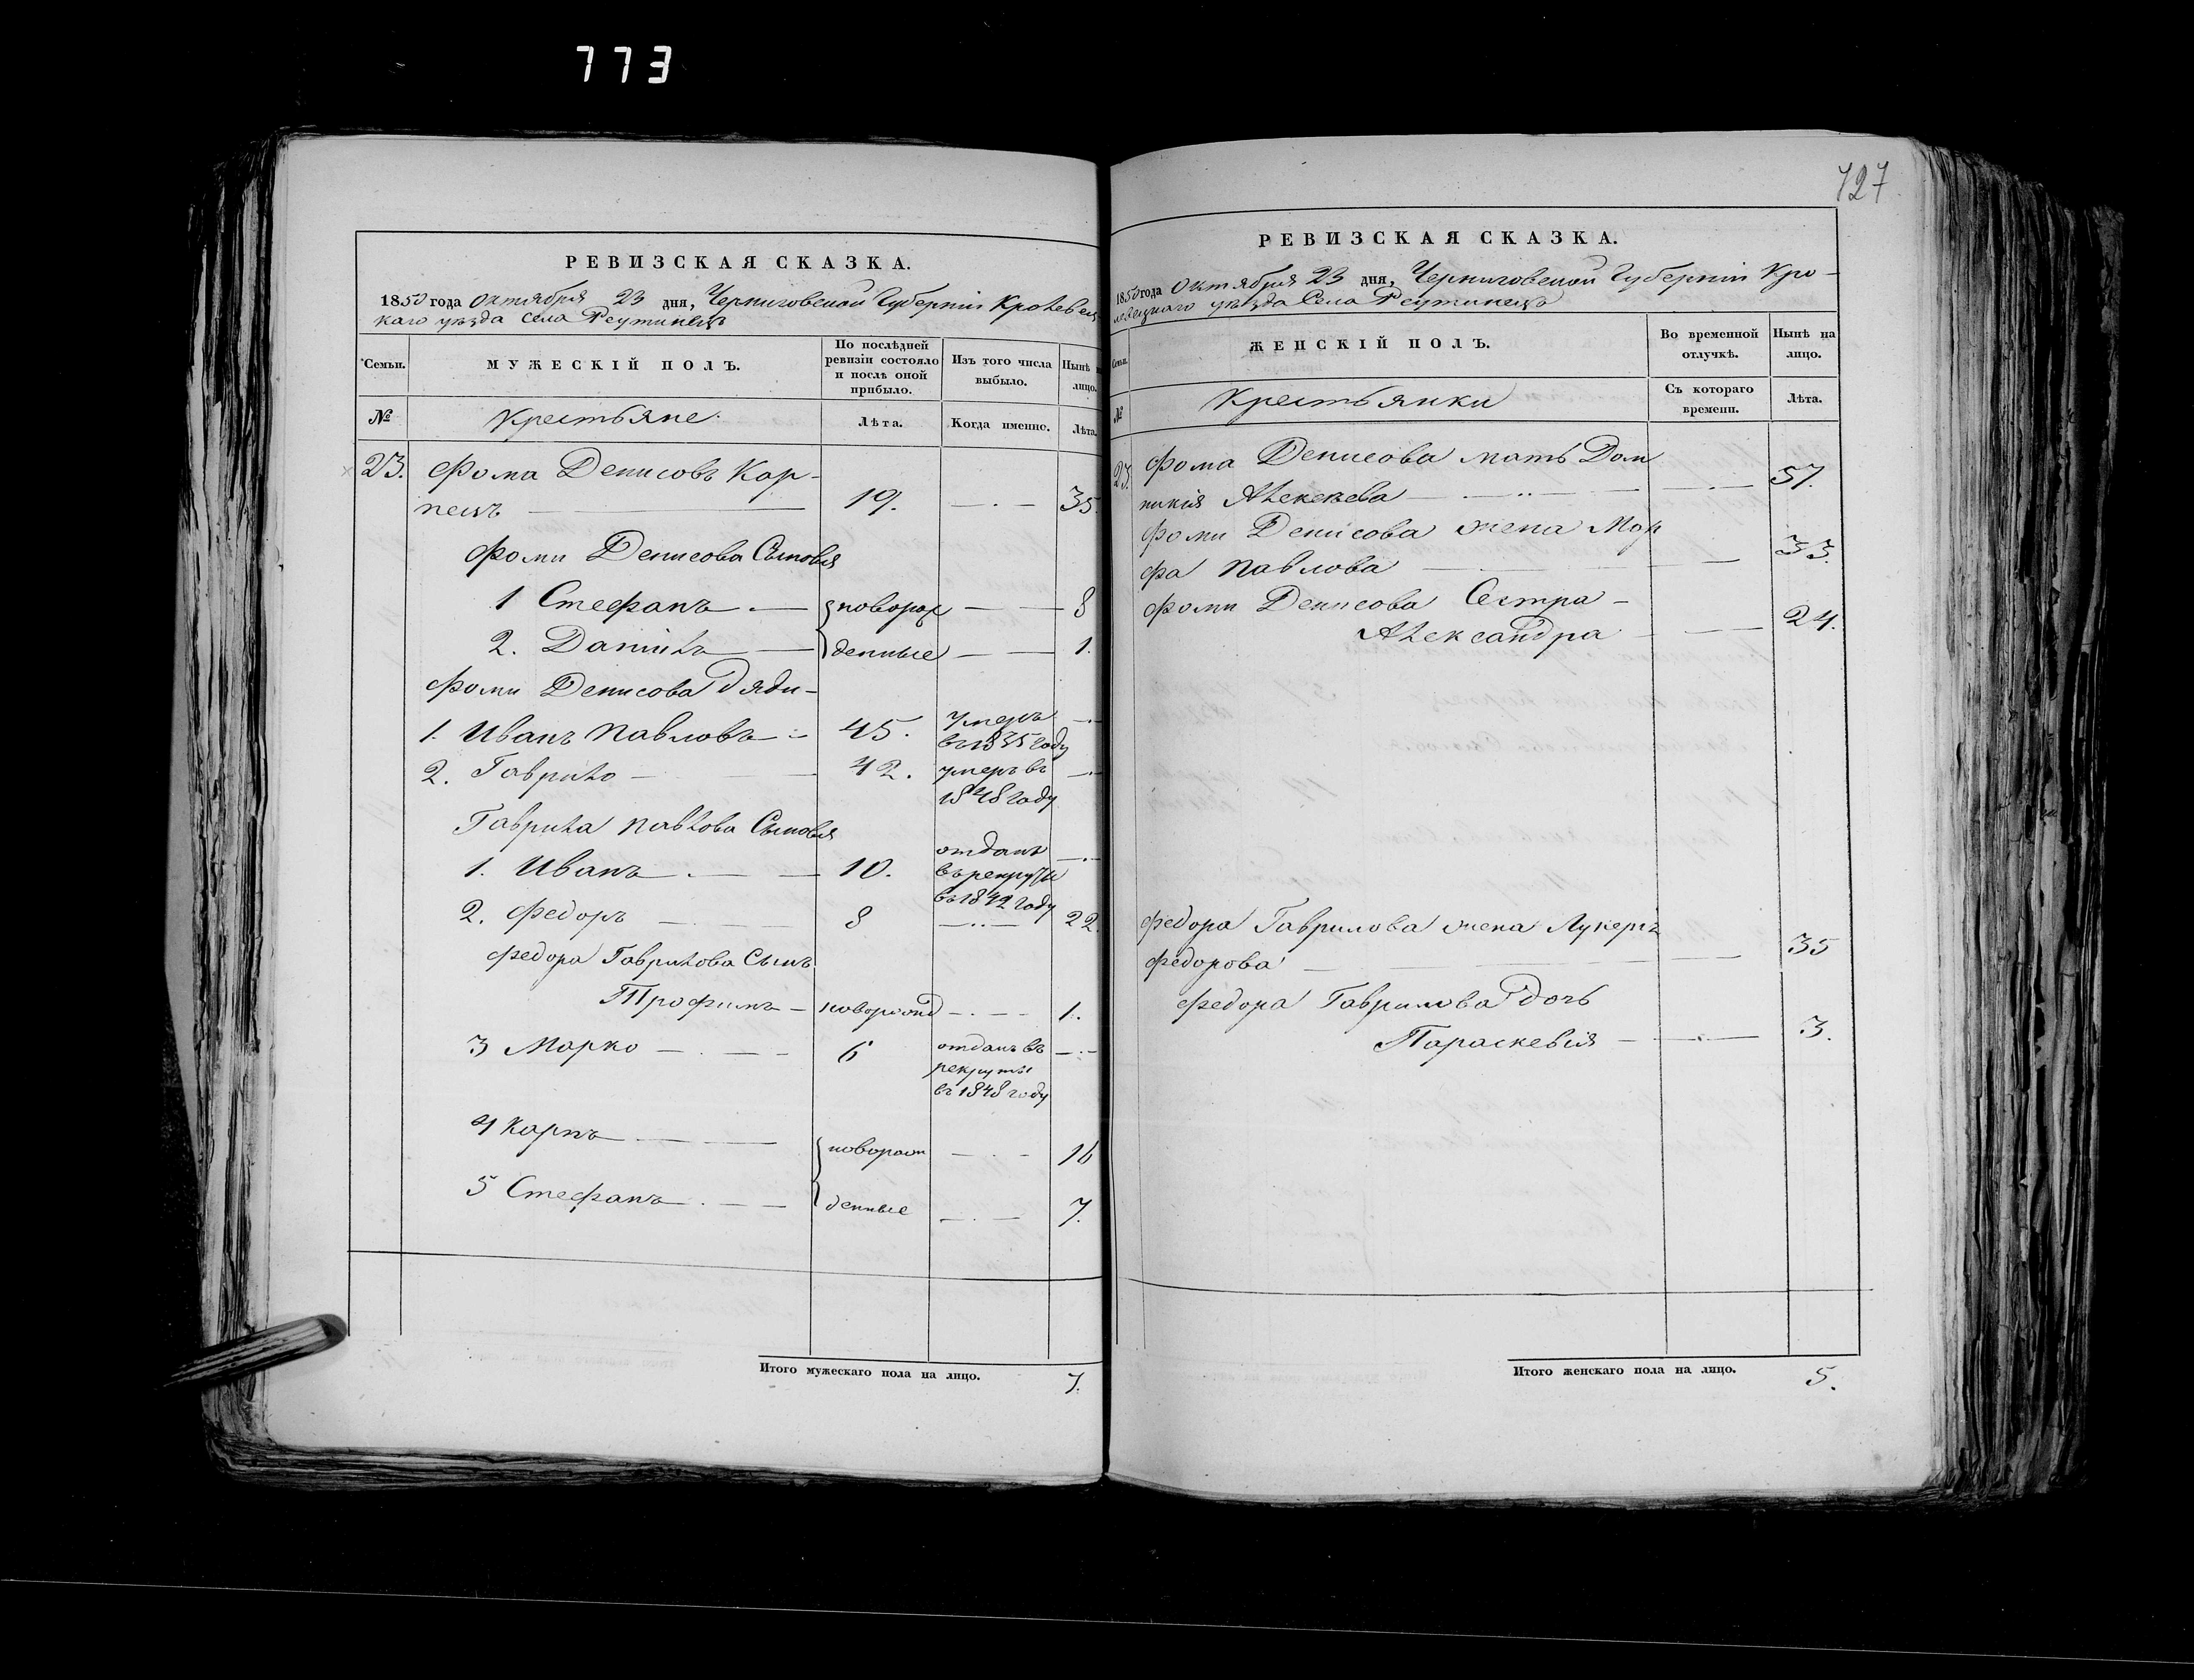 773
РЕВИЗСКАЯ СКАЗКА.
1850 года Октября 23 дня, Черниговской Губерніи Кролевец
каго уѣзда села Реутинецъ
Семьи.
МУЖЕСКІЙ ПОЛЪ.
По послѣдней
ревизіи состояло
и послѣ оной
прибыло.
Изъ того числа
выбыло.
Нынѣ на
лицо.
№
Крестьяне.
Лѣта.
Когда именно.
Лѣта.
23. Фома Денисовъ Кар-
пецъ 19. 35.
Фоми Денисова Сыновья
1 Стефанъ новорож 8
2. Данило денные 1.
Фоми Денисова Дяди-
1. Иванъ Павловъ 45. умеръ
въ 1835 году
2. Гаврило 42. умеръ въ
1848 году
Гаврила Павлова Сыновья
1. Иванъ 10. отданъ
въ рекруты
въ 1842 году
2. Федоръ 8 22.
Федора Гаврилова Сынъ
Трофимъ новорожд 1.
3 Марко 6 отданъ въ
рекруты
въ 1848 году
4 Карпъ новорож 16
5 Стефанъ денные 7.
Итого мужескаго пола на лицо. 7.
127
РЕВИЗСКАЯ СКАЗКА.
1850 года Октября 23 дня, Черниговской Губерніи Кро-
левецкаго уѣзда Села Реутинецъ
Семьи.
ЖЕНСКІЙ ПОЛЪ.
Во временной
отлучкѣ.
Нынѣ на
лицо.
№
Крестьянки
Съ котораго
времени.
Лѣта.
23. Фома Денисова мать Дом
никія Алексѣева 57.
Фоми Денисова жена Мар
фа Павлова 33.
Фоми Денисова Сестра-
Александра 24.
Федора Гаврилова жена Лукерья
Федорова 35
Федора Гаврилова дочь
Параскевія 3.
Итого женскаго пола на лицо. 5.